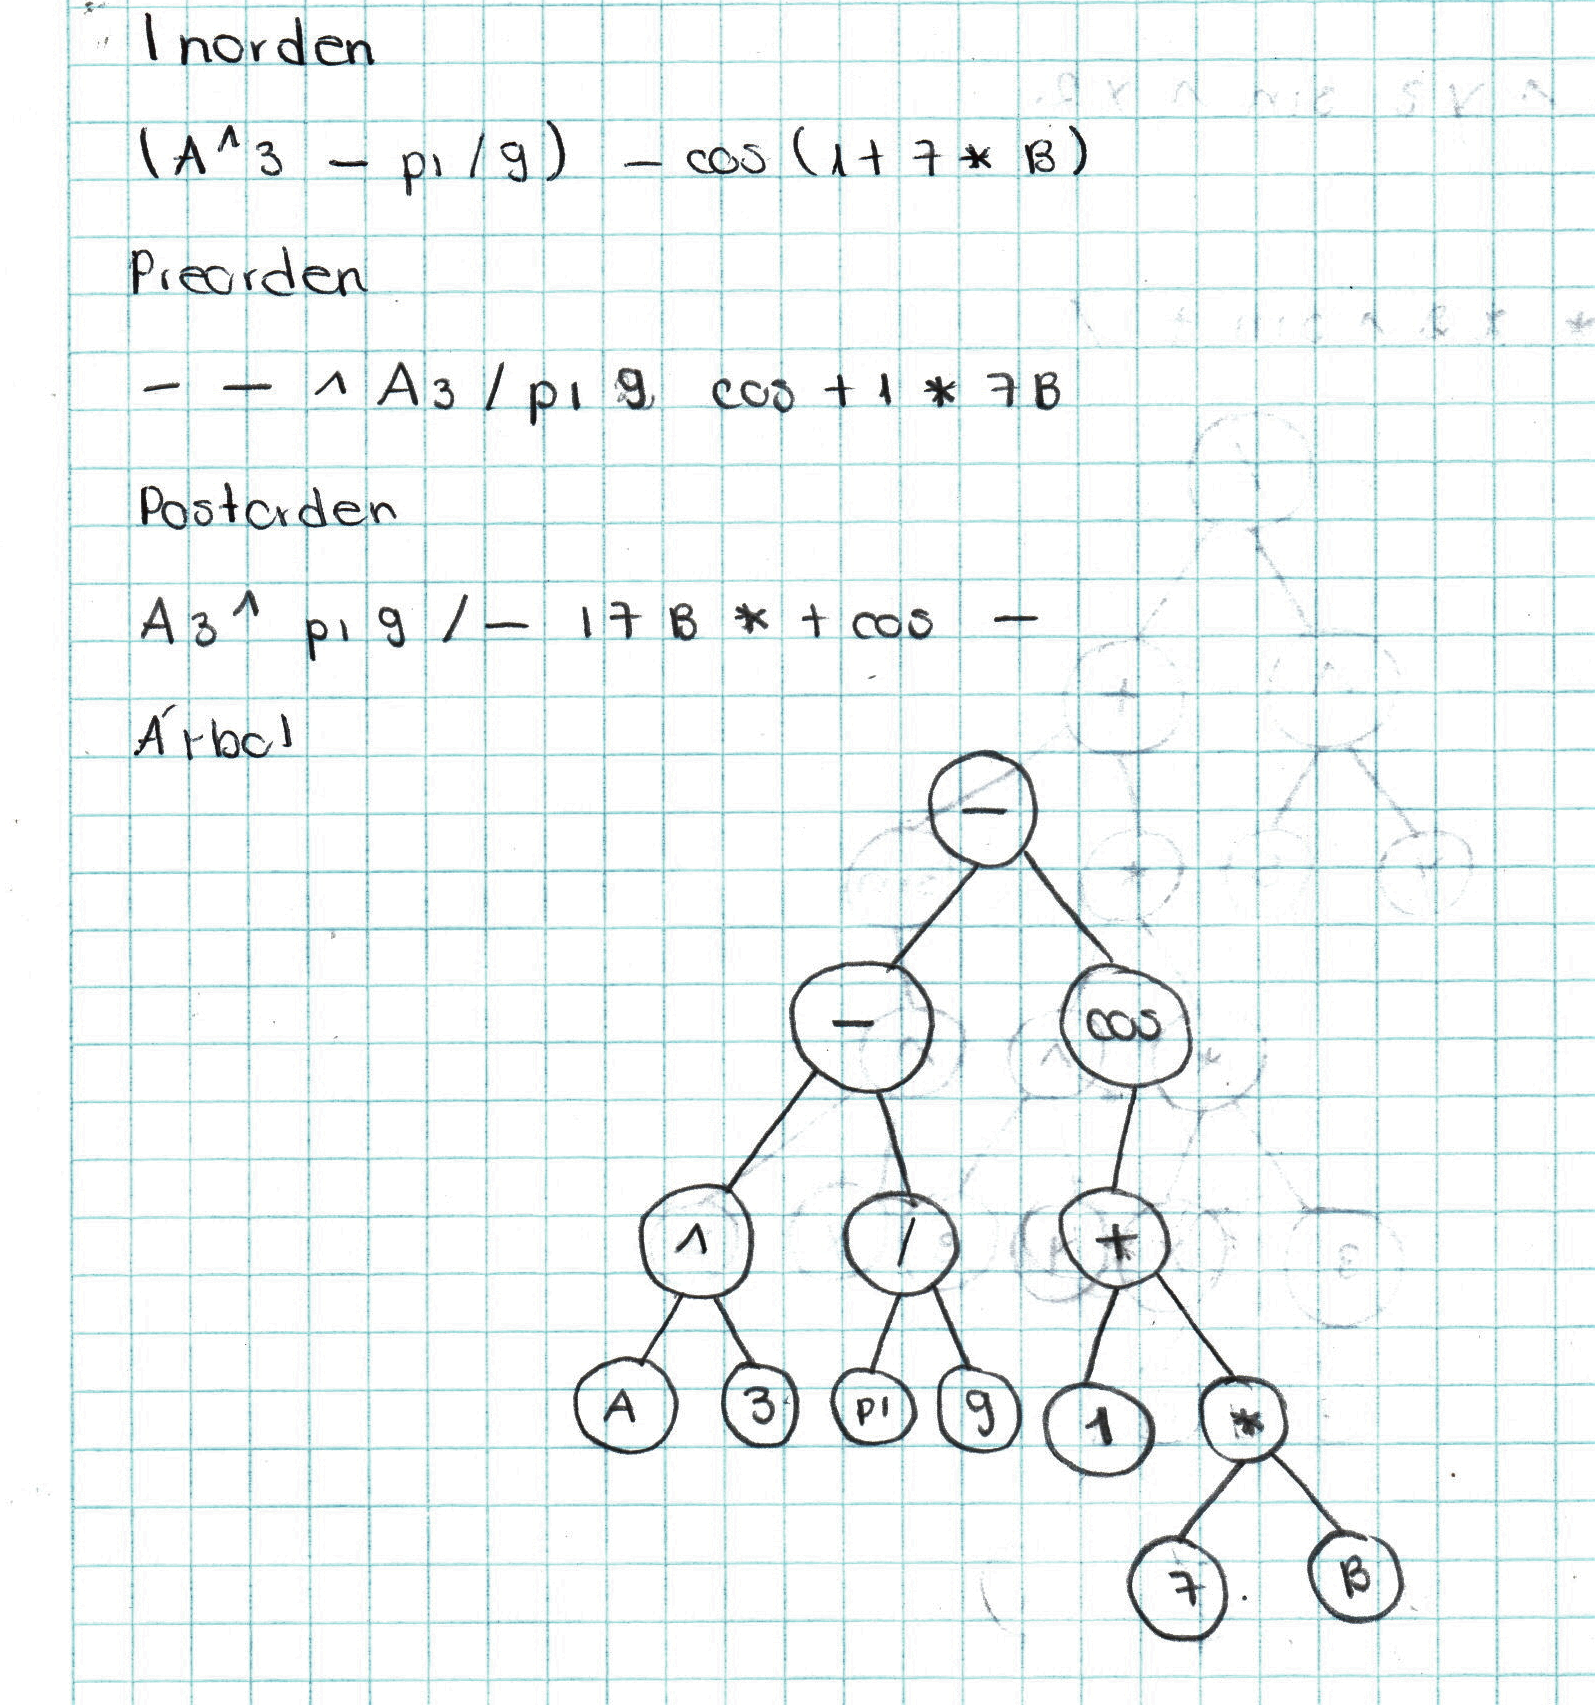 Inorden
(A^3 - pi/9) - cos(1+7*B)
Preorden
- - ^ A3/pi 9 cos+1*7B
Postorden
A3^ pi 9 /- 17B*+cos -
Árbol
-
- cos
^ / +
A 3 pi 9 1 *
7 B